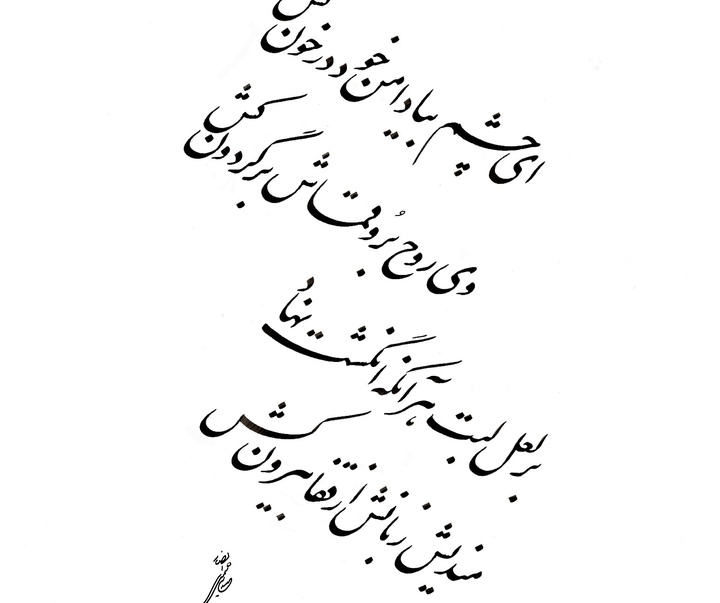 ای چشم بیا دامن خود در خون کش
وی روح بُرو قماش بر گردون کش
بر لعل لبت هر آنکه انگشت نهاد
مندیش زبانش از قفا بیرون کش